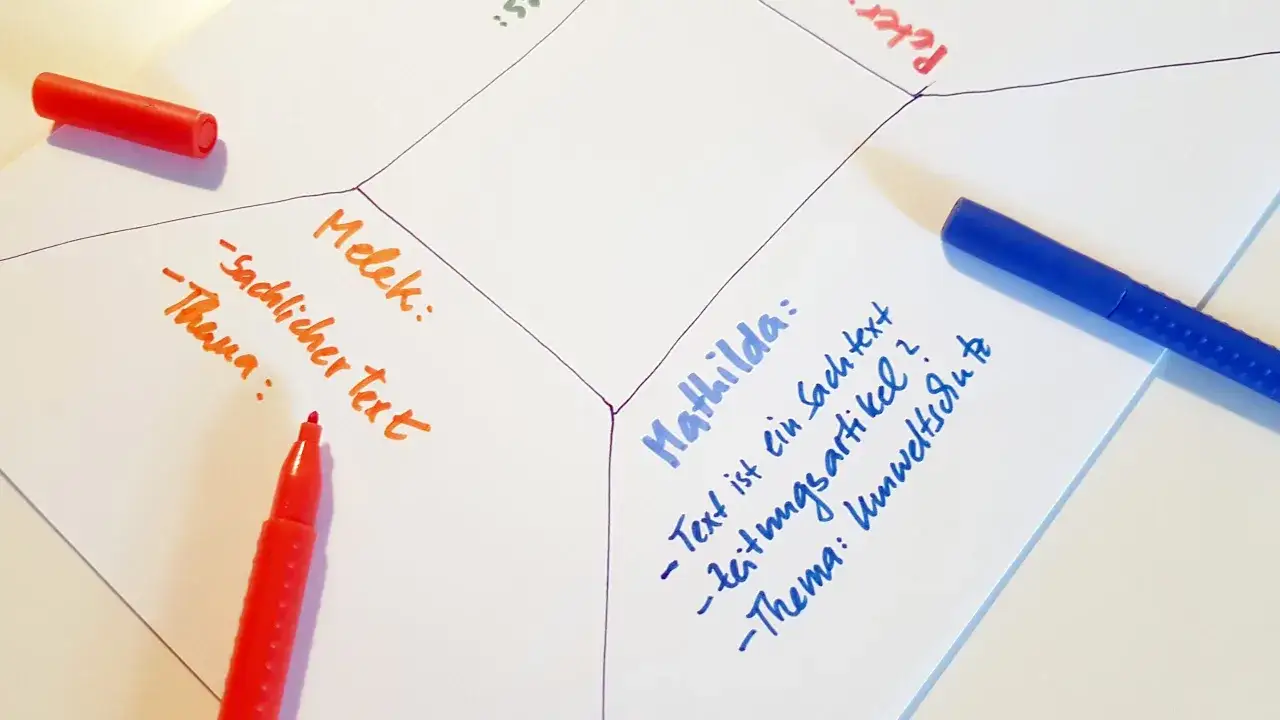 Peter:
Melek:
- sachlicher Text
- Thema:
Mathilda:
- Text ist ein Sachtext
- Zeitungsartikel?
- Thema: Umweltschutz